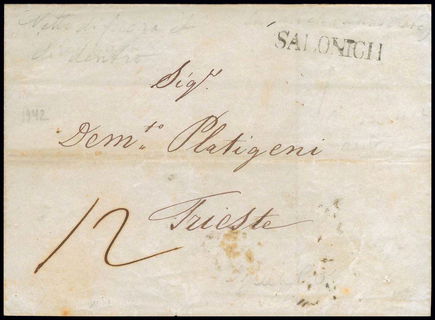 Netti di fuora et
di dentro
SALONICH
Sigr.
1842
Demto. Platigeni
12
Trieste